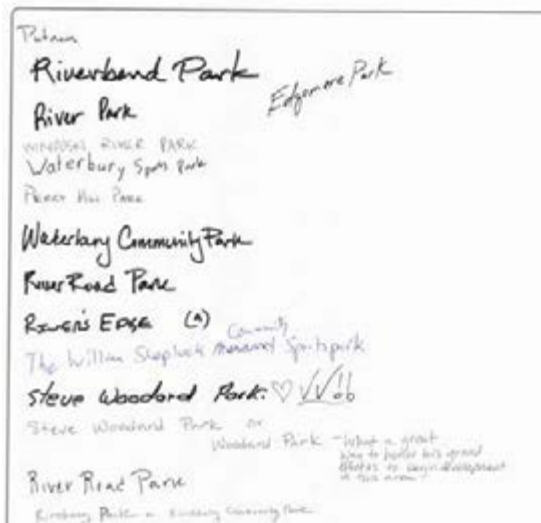 Putnam
Riverbend Park
Edgemere Park
River Park
WINOOSKI RIVER PARK
Waterbury Sports Park
Perry Hill Park
Waterbury Community Park
River Road Park
RIVER'S EDGE
Community
The William Sports park
Steve Woodard Park. ♡ ✓✓!!
Steve Woodard Park or
Woodard Park - What a great
way to honor his grand
efforts to begin development
in this area!
River Road Park
Community Park